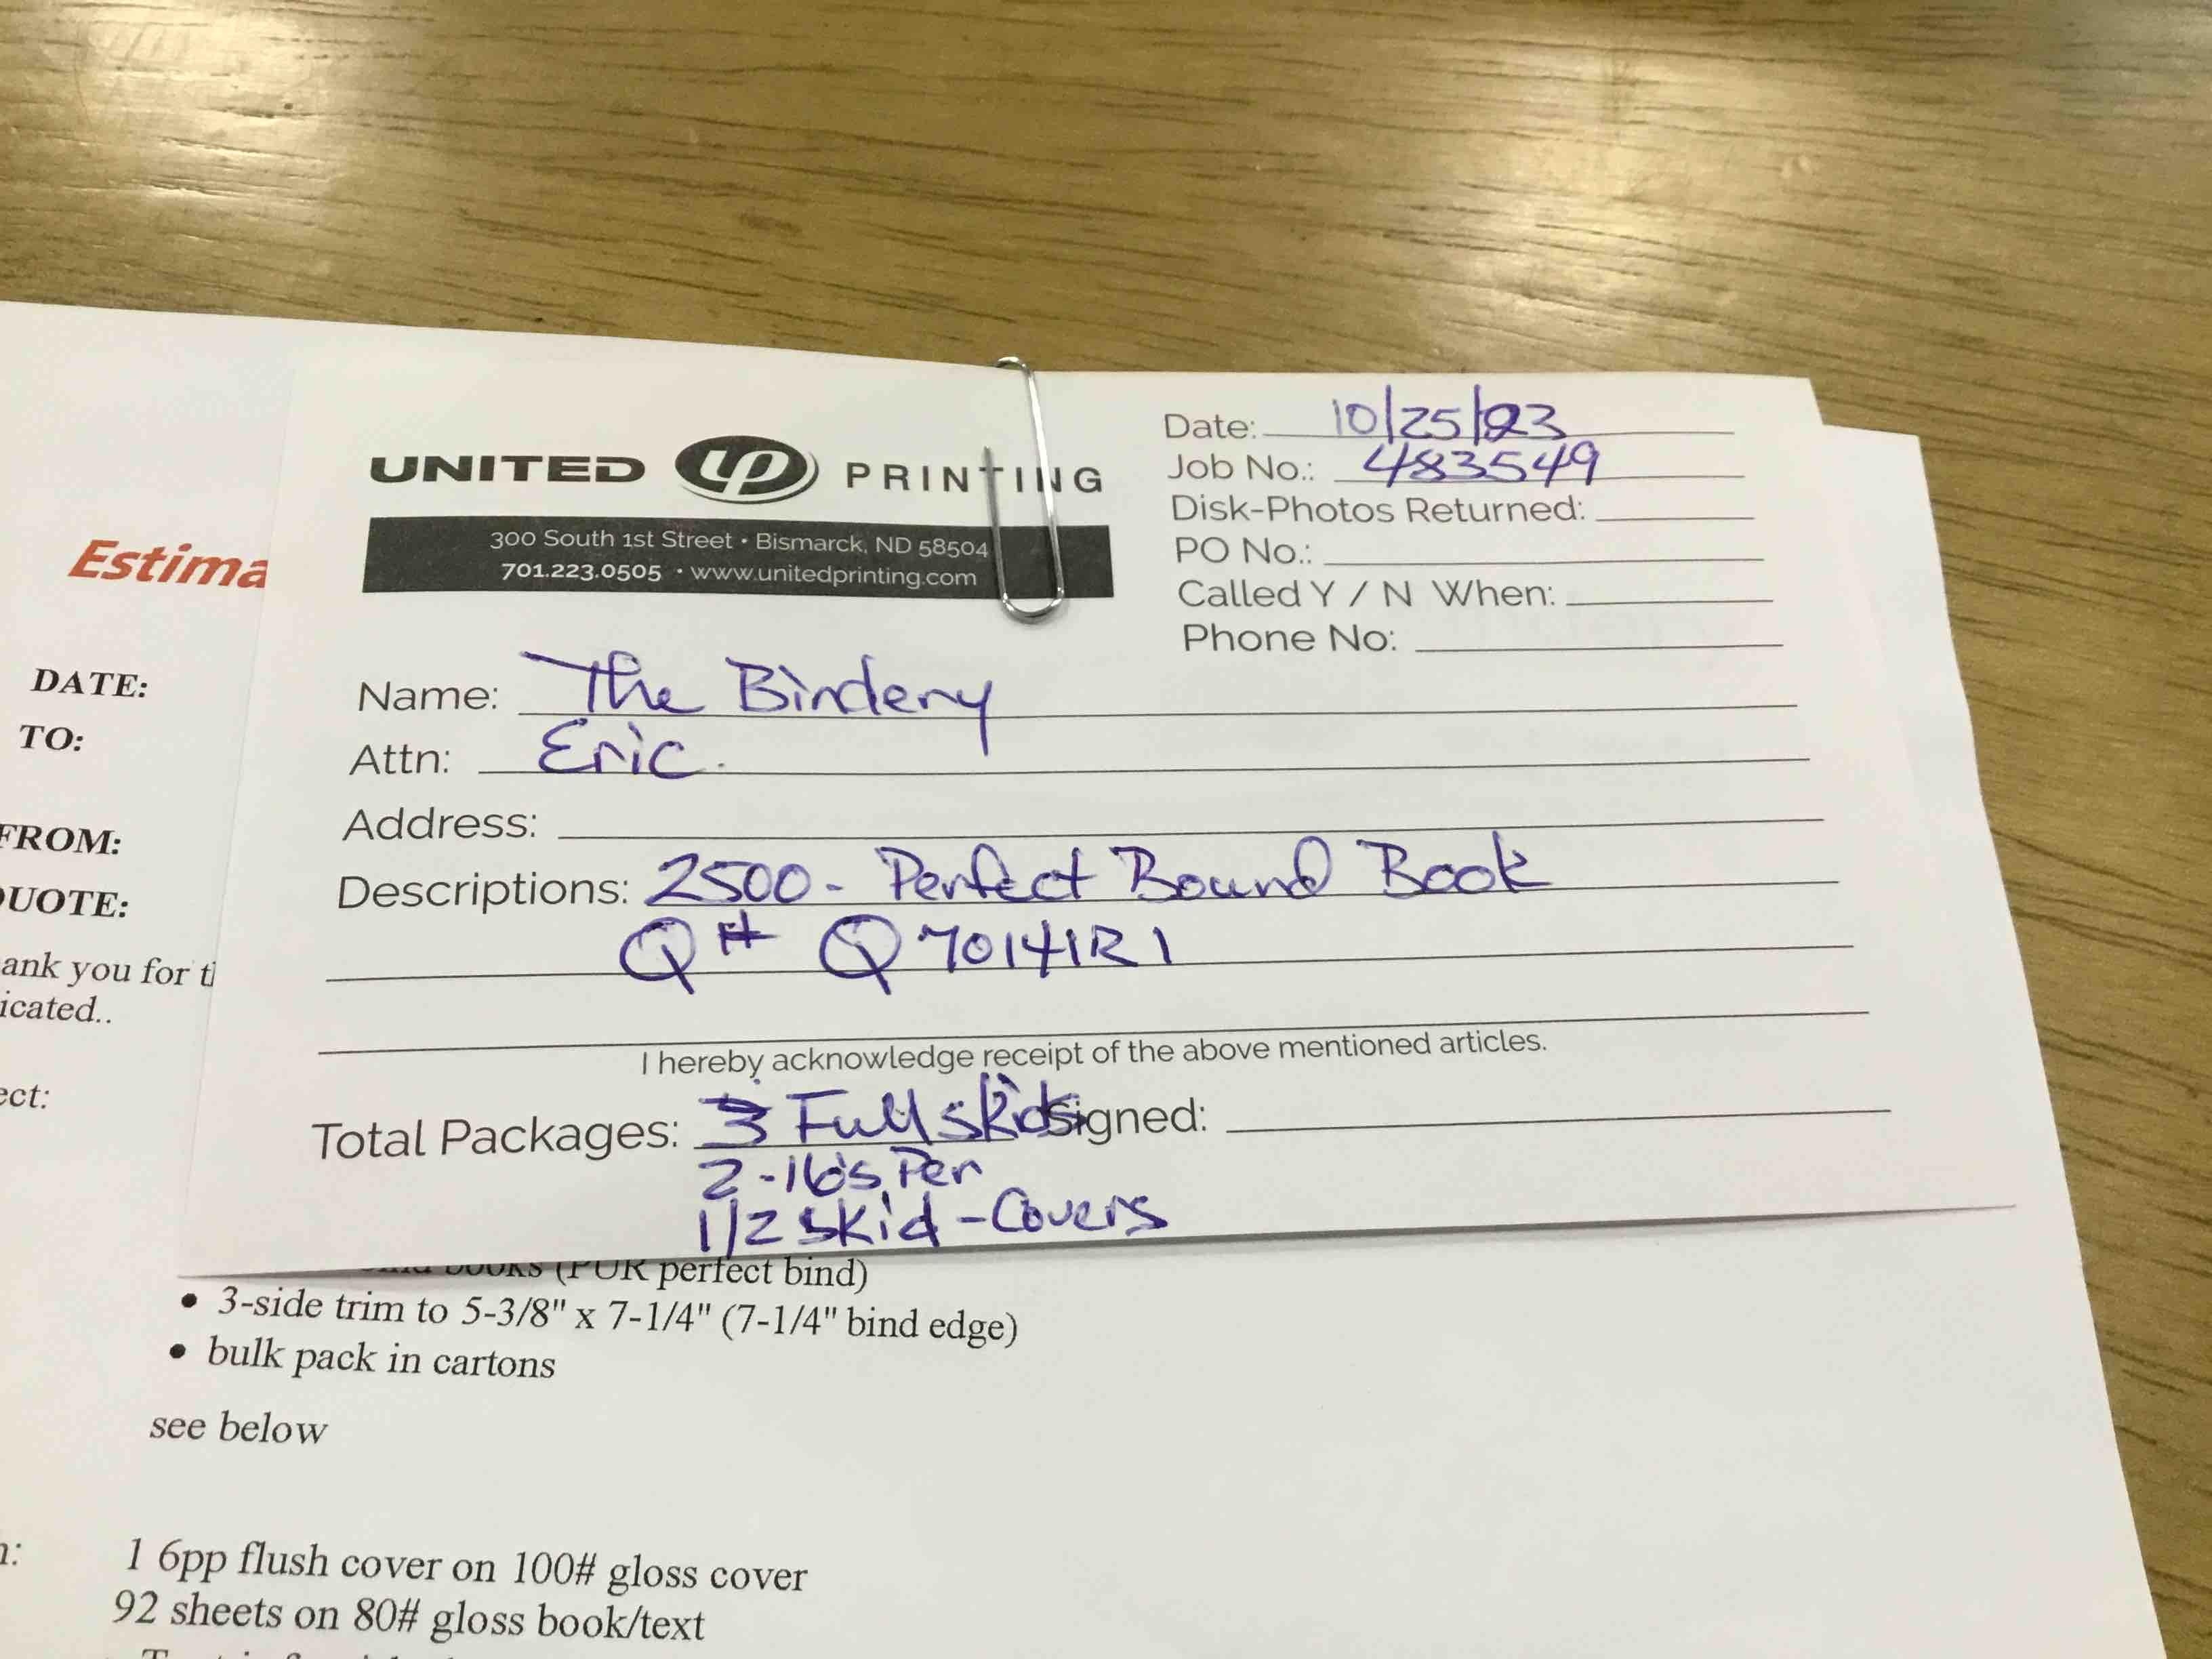 UNITED UP PRINTING
300 South 1st Street • Bismarck, ND 58504
701.223.0505 • www.unitedprinting.com
Date: 10/25/23
Job No.: 483549
Disk-Photos Returned:
PO No.:
Called Y / N When:
Phone No:
Name: The Bindery
Attn: Eric.
Address:
Descriptions: 2500 - Perfect Bound Book
Q# Q70141R1
I hereby acknowledge receipt of the above mentioned articles.
Total Packages: 3 Full skids Signed:
2-16's Per
1/2 skid - Covers
Estima
DATE:
TO:
FROM:
QUOTE:
ank you for t
icated..
ect:
books (PUR perfect bind)
• 3-side trim to 5-3/8" x 7-1/4" (7-1/4" bind edge)
• bulk pack in cartons
see below
1 6pp flush cover on 100# gloss cover
92 sheets on 80# gloss book/text